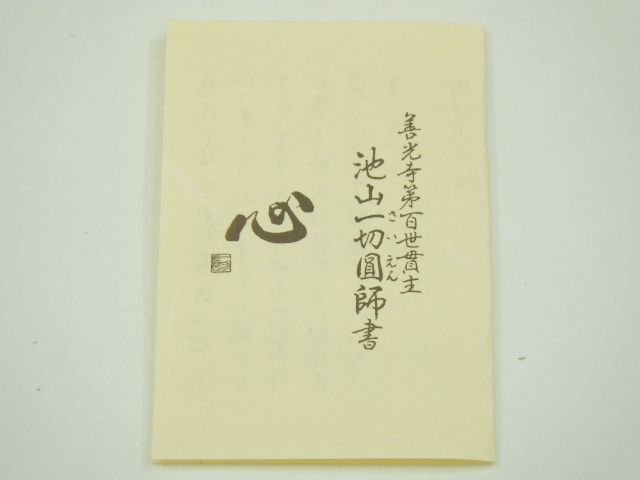 善光寺第百世貫主
池山一切圓師書
さいえん
心